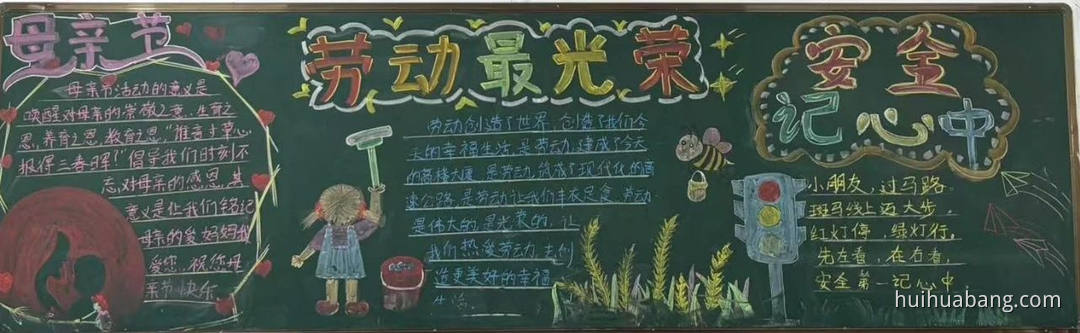 母亲节
母亲节活动的意义是
唤醒对母亲的崇敬之意、生育之
恩,养育之恩,教育之恩,"谁言寸草心,
报得三春晖!"倡导我们时刻不
忘对母亲的感恩,其
意义是让我们铭记
母亲的爱妈妈我
爱您,祝您母
亲节快乐
劳动最光荣
劳动创造了世界,创造了我们今
天的幸福生活,是劳动,建成了今天
的高楼大厦,是劳动,筑成了现代化的高
速公路,是劳动让我们丰衣足食,劳动
是伟大的,是光荣的,让
我们热爱劳动,去创
造更美好的幸福
生活。
安全
记心中
小朋友,过马路,
斑马线上迈大步,
红灯停,绿灯行,
先左看,在右看,
安全第一记心中
huihuabang.com